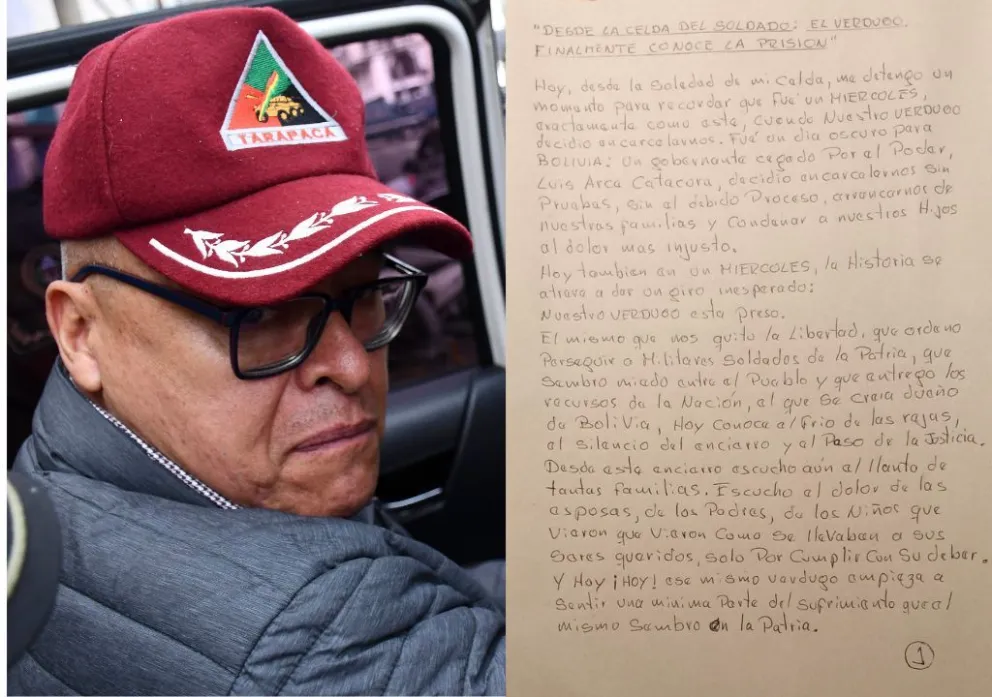 TARAPACÁ
"DESDE LA CELDA DEL SOLDADO: EL VERDUGO
FINALMENTE CONOCE LA PRISION"
Hoy, desde la Soledad de mi Celda, me detengo un
momento para recordar que Fué un MIERCOLES,
exactamente como este, Cuando Nuestro VERDUGO
decidio encarcelarnos. Fué un dia oscuro para
BOLIVIA: Un gobernante cegado Por el Poder,
Luis Arce Catacora, decidio encarcelarnos Sin
Pruebas, Sin el debido Proceso, arrancarnos de
nuestras familias y Condenar a nuestros Hijos
al dolor mas injusto.
Hoy tambien en un MIERCOLES, la Historia se
atreve a dar un giro inesperado:
Nuestro VERDUGO esta preso.
El mismo que nos quito la Libertad, que ordeno
Perseguir a Militares Soldados de la Patria, que
Sembro miedo entre el Pueblo y que entrego los
recursos de la Nación, el que Se Creia dueño
de Bolivia, Hoy Conoce el frio de las rejas,
el silencio del encierro y el Peso de la Justicia.
Desde este encierro escucho aún el llanto de
tantas familias. Escucho el dolor de las
esposas, de los Padres, de los Niños que
Vieron que Vieron Como Se llevaban a sus
Seres queridos, solo Por Cumplir Con Su deber.
Y Hoy ¡Hoy! ese mismo verdugo empieza a
Sentir una minima Parte del Sufrimiento que el
mismo Sembro en la Patria.
1